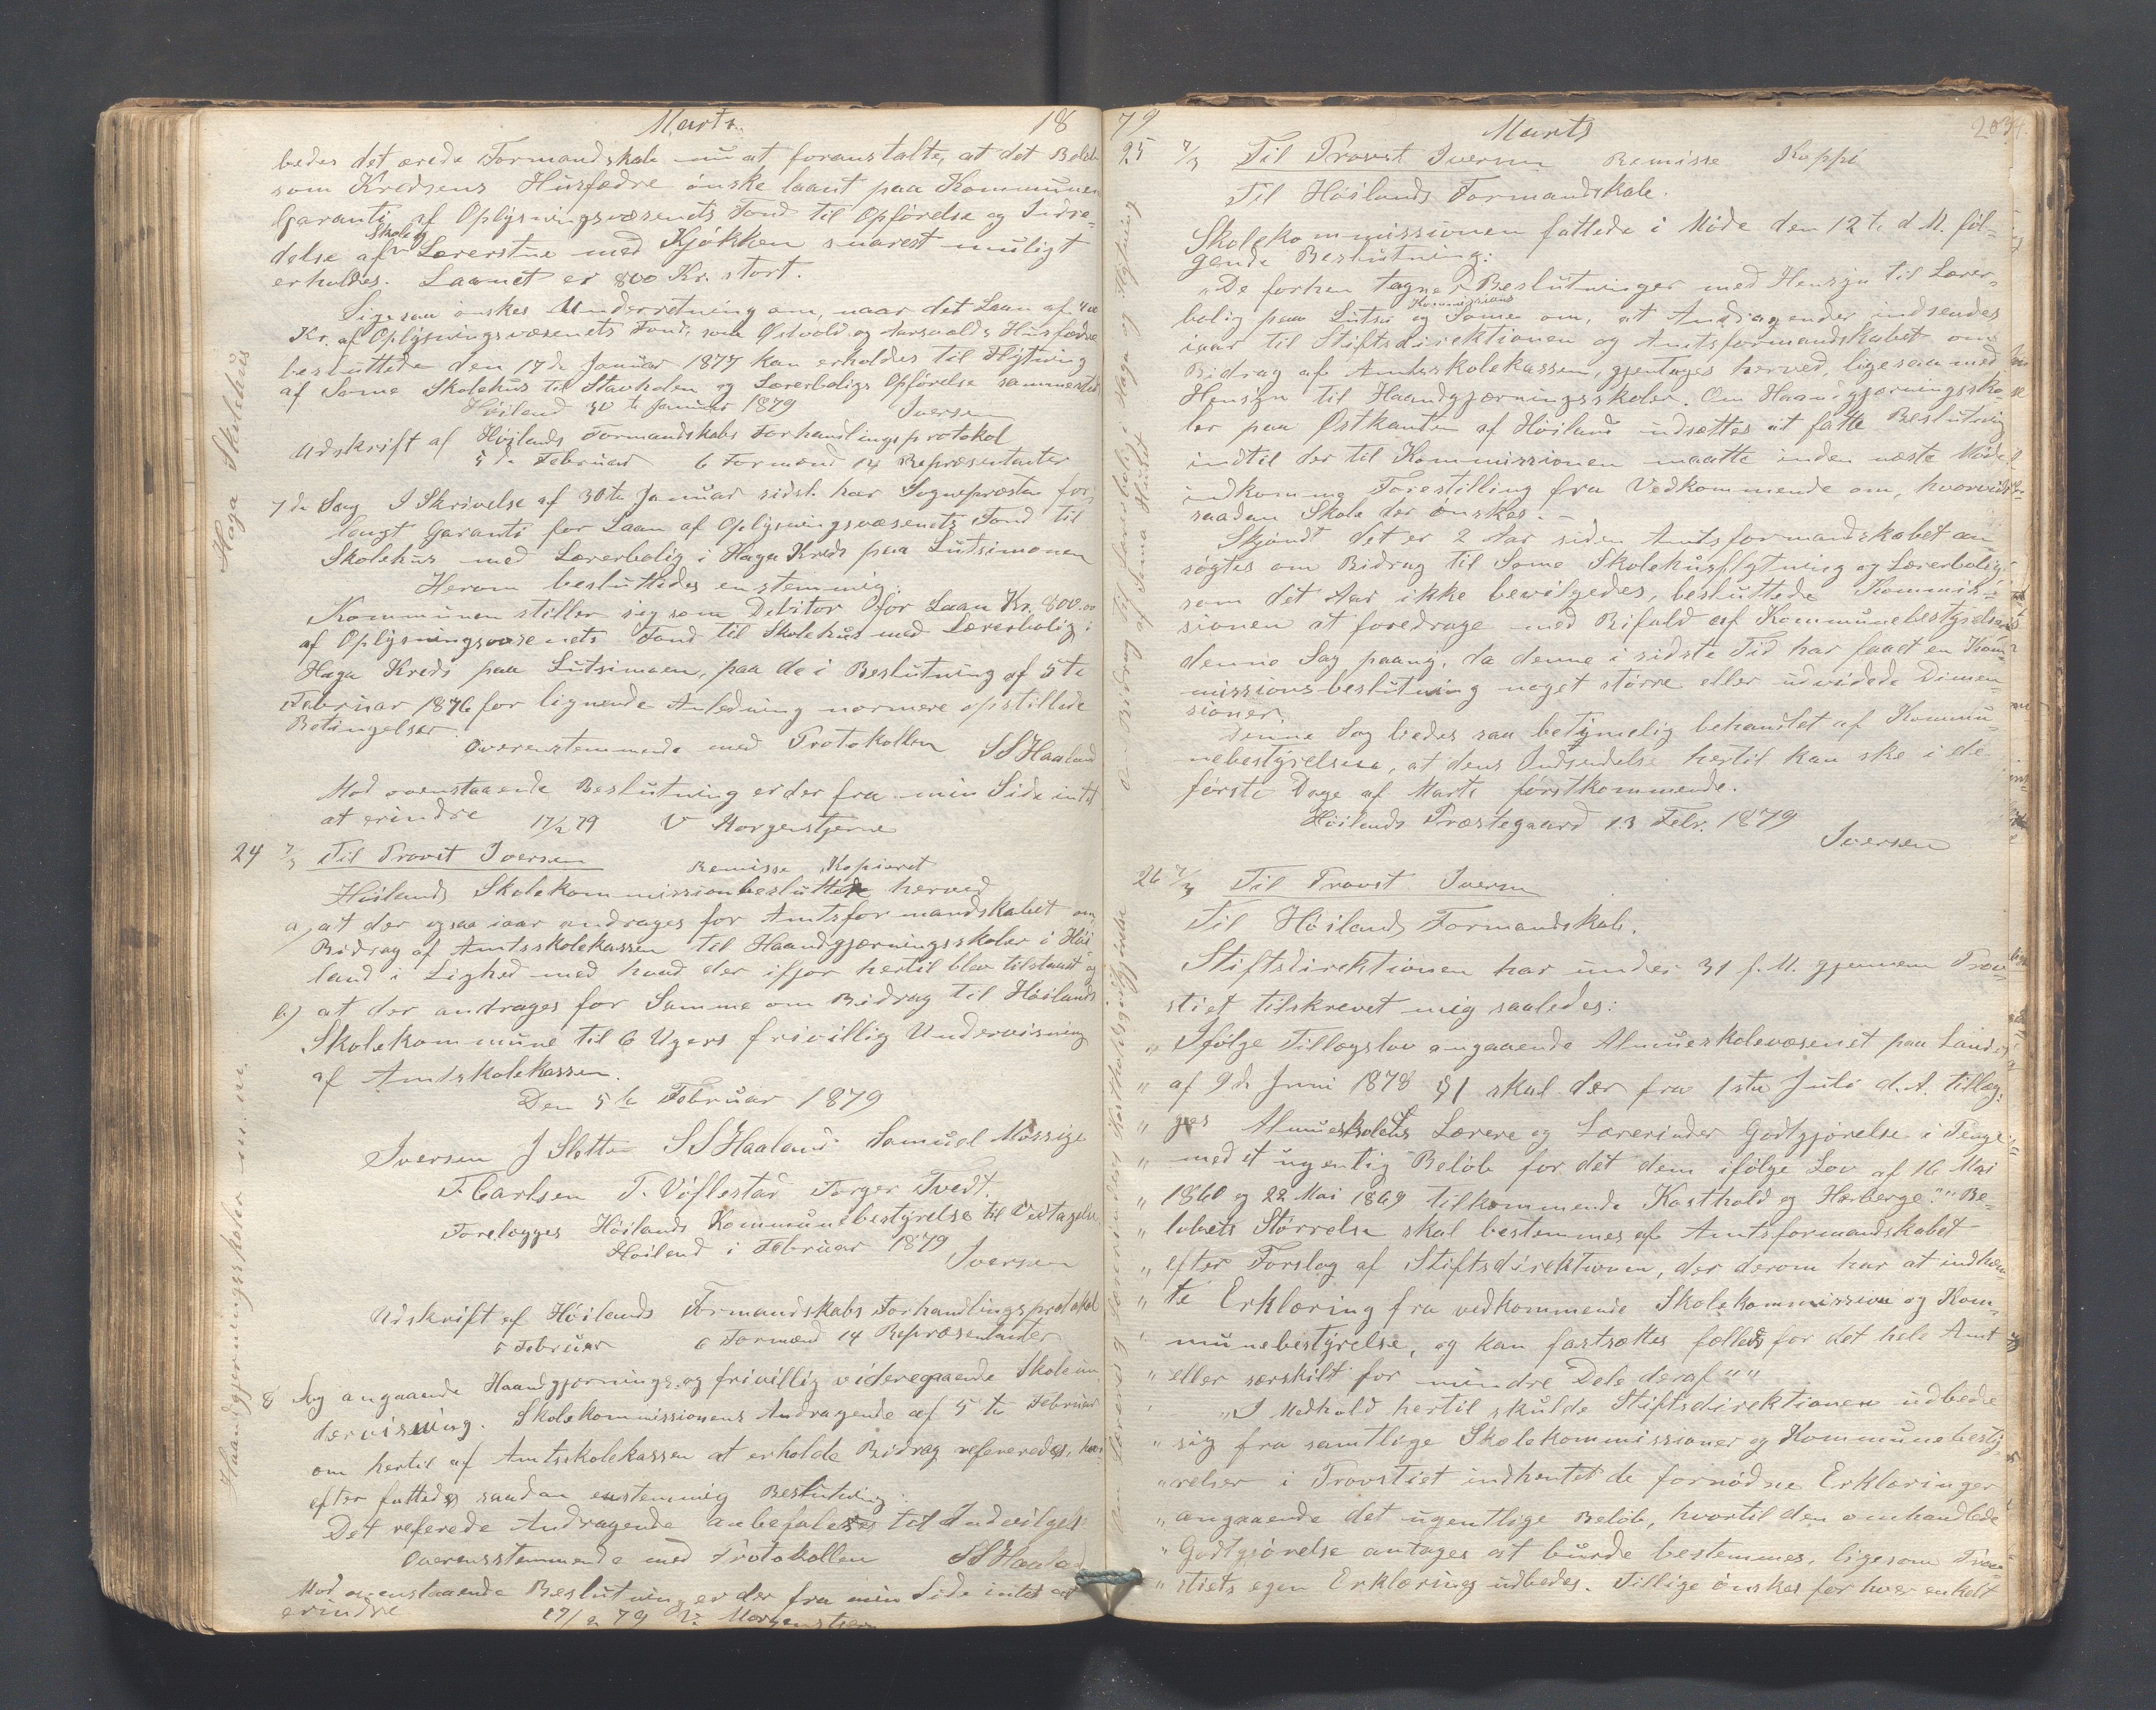 Marts 18
bedes det ærede Formandskab nu at foranstalte, at det Beløb
som Kredsens Husfædre ønske laant paa Kommunens
Garanti af Oplysningsvæsenets Fond til Opførelse og Indre-
delse af Skole og Lærerstue med Kjøkken snarest muligt
erholdes. Laanet er 800 Kr. stort.
Ligesaa ønskes Underretning om, naar det Laan af 400
Kr. af Oplysningsvæsenets Fond, som og Aarsvolds Husfædre
besluttede den 17de Januar 1877 kan erholdes til Flytning
af Some Skolehus til Stavholen og Lærerboligs Opførelse sammesteds
Høiland 30te Januar 1879 Iversen
Udskrift af Høilands Formandskabs Forhandlingsprotokol
5de Februar 6 Formænd 14 Repræsentanter
7de Sag I Skrivelse af 30te Januar sidst. har Sognepræsten for-
langt Garanti for Laan af Oplysningsvæsenets Fond til
Skolehus med Lærerbolig i Haga Kreds paa Lutsimoen
Herom besluttedes enstemmig:
Kommunen stiller sig som Debitor for Laan Kr. 800.00
af Oplysningsvæsenets Fond til Skolehus med Lærerbolig i
Haga Kreds paa Lutsimoen, paa de i Beslutning af 5te
Februar 1876 for lignende Anledning nærmere opstillede
Betingelser.
Overenstemmende med Protokollen SS Haaland
Mod ovenstaaende Beslutning er der fra min Side intet
at erindre 17/2 79 V Morgenstjerne
Haga Skolehus
24 7/3 Til Provst Iversen Remisse Kopieret
Høilands Skolekommission besluttede herved
a) at der ogsaa iaar andrages for Amtsformandskabet om
Bidrag af Amtsskolekassen til Haandgjærningsskoler i Høi
land i Lighed med hvad der ifjor hertil blev tilstaaet og
b) at der andrages for Samme om Bidrag til Høilands
Skolekommune til 6 Ugers frivillig Undervisning
af Amtskolekassen.
Den 5te Februar 1879
Iversen J Sletten SS Haaland Samuel Mossige
F. Carlsen T. Vøllestad Torger Tvedt.
Forelægges Høilands Kommunebestyrelse til Vedtagelse.
Høiland i Februar 1879 Iversen
Udskrift af Høilands Formandskabs Forhandlingsprotokol
5 Februar 6 Formænd 14 Repræsentanter
8 Sag angaaende Haandgjernings og frivillig videregaaende Skoleun
dervisning. Skolekommissionens Andragende af 5te Februar
om hertil af Amtsskolekassen at erholde Bidrag refereredes, hvor
efter fattedes saadan enstemmig Beslutning:
Det referede Andragende anbefales til Indvilgelse
Overensstemmende med Protokollen SS Haaland
Mod ovenstaaende Beslutning er der fra min Side intet at
erindre 17/2 79 V. Morgenstjerne
Haandgjerningsskoler m. m.
79 Marts 203
25 7/3 Til Provst Iversen Remisse Koppi
Til Høilands Formandskab.
Skolekommissionen fattede i Møde den 12te d. M. føl-
gende Beslutning:
"De forhen tagne Beslutninger med Hensyn til Lærer-
bolig paa Lutsi og Some Kommissions om, at Andragender indsendes
iaar til Stiftsdirektionen og Amtsformandskabet om
Bidrag af Amtsskolekassen, gjentages herved, ligesaa med
Hensyn til Haandgjærningsskoler. Om Haandgjærningsko-
ler paa Østkanten af Høiland udsættes at fatte Beslutning
indtil der til Kommissionen maatte inden næste Møde
indkomme Forestilling fra Vedkommende om, hvorvidt
saadan Skole der ønskes.
Skjøndt det er 2 Aar siden Amtsformandskabet an-
søgtes om Bidrag til Some Skolehusflytning og Lærerbolig,
som det Aar ikke bevilgedes, besluttede Kommis-
sionen at foredrage med Bifald af Kommunebestyrelsen
denne Sag paany, da denne i sidste Tid har faaet en Kom-
missionsbeslutning noget større eller udvidede Dimen-
sioner.
Denne Sag bedes saa betimelig behandlet af Kommu-
nebestyrelsen, at dens Indsendelse hertil kan ske i de
første Dage af Marts førstkommende.
Høilands Præstegaard 13 Febr. 1879
Iversen
Om Bidrag til Lærerbolig i Haga og Flytning
af Soma Huset
26 7/3 Til Provst Iversen
Til Høilands Formandskab.
Stiftsdirektionen har under 31 f. M. gjennem Prov-
stiet tilskrevet mig saaledes:
" Ifølge Tillægslov angaaende Almueskolevæsenet paa Landet
" af 9de Juni 1878 §1 skal der fra 1ste Juli d. A. tillæg-
" ges Almueskolens Lærere og Lærerinder Godtgjørelse i Penge
" med et ugentlig Beløb for det dem ifølge Lov af 16 Mai
" 1860 og 22 Mai 1869 tilkommende Kosthold og Herberge."" Be-
" løbets Størrelse skal bestemmes af Amtsformandskabet
" efter Forslag af Stiftsdirektionen, der derom har at indhen-
" te Erklæring fra vedkommende Skolekommission og Kom-
" munebestyrelse, og kan fastsættes fælleds for det hele Amt
" eller særskilt for mindre Dele deraf""
" "I Medhold hertil skulde Stiftsdirektionen udbede
" sig fra samtlige Skolekommissioner og Kommunebesty-
" relser i Provstiet indhentet de fornødne Erklæringer
" angaaende det ugentlige Beløb, hvortil den omhandlede
" Godtgjørelse antages at burde bestemmes, ligesom Prov-
" stiets egen Erklæring udbedes. Tillige ønskes for hver enkelt
Om Læreres og Lærerinders Kostholdsgodtgjørelse